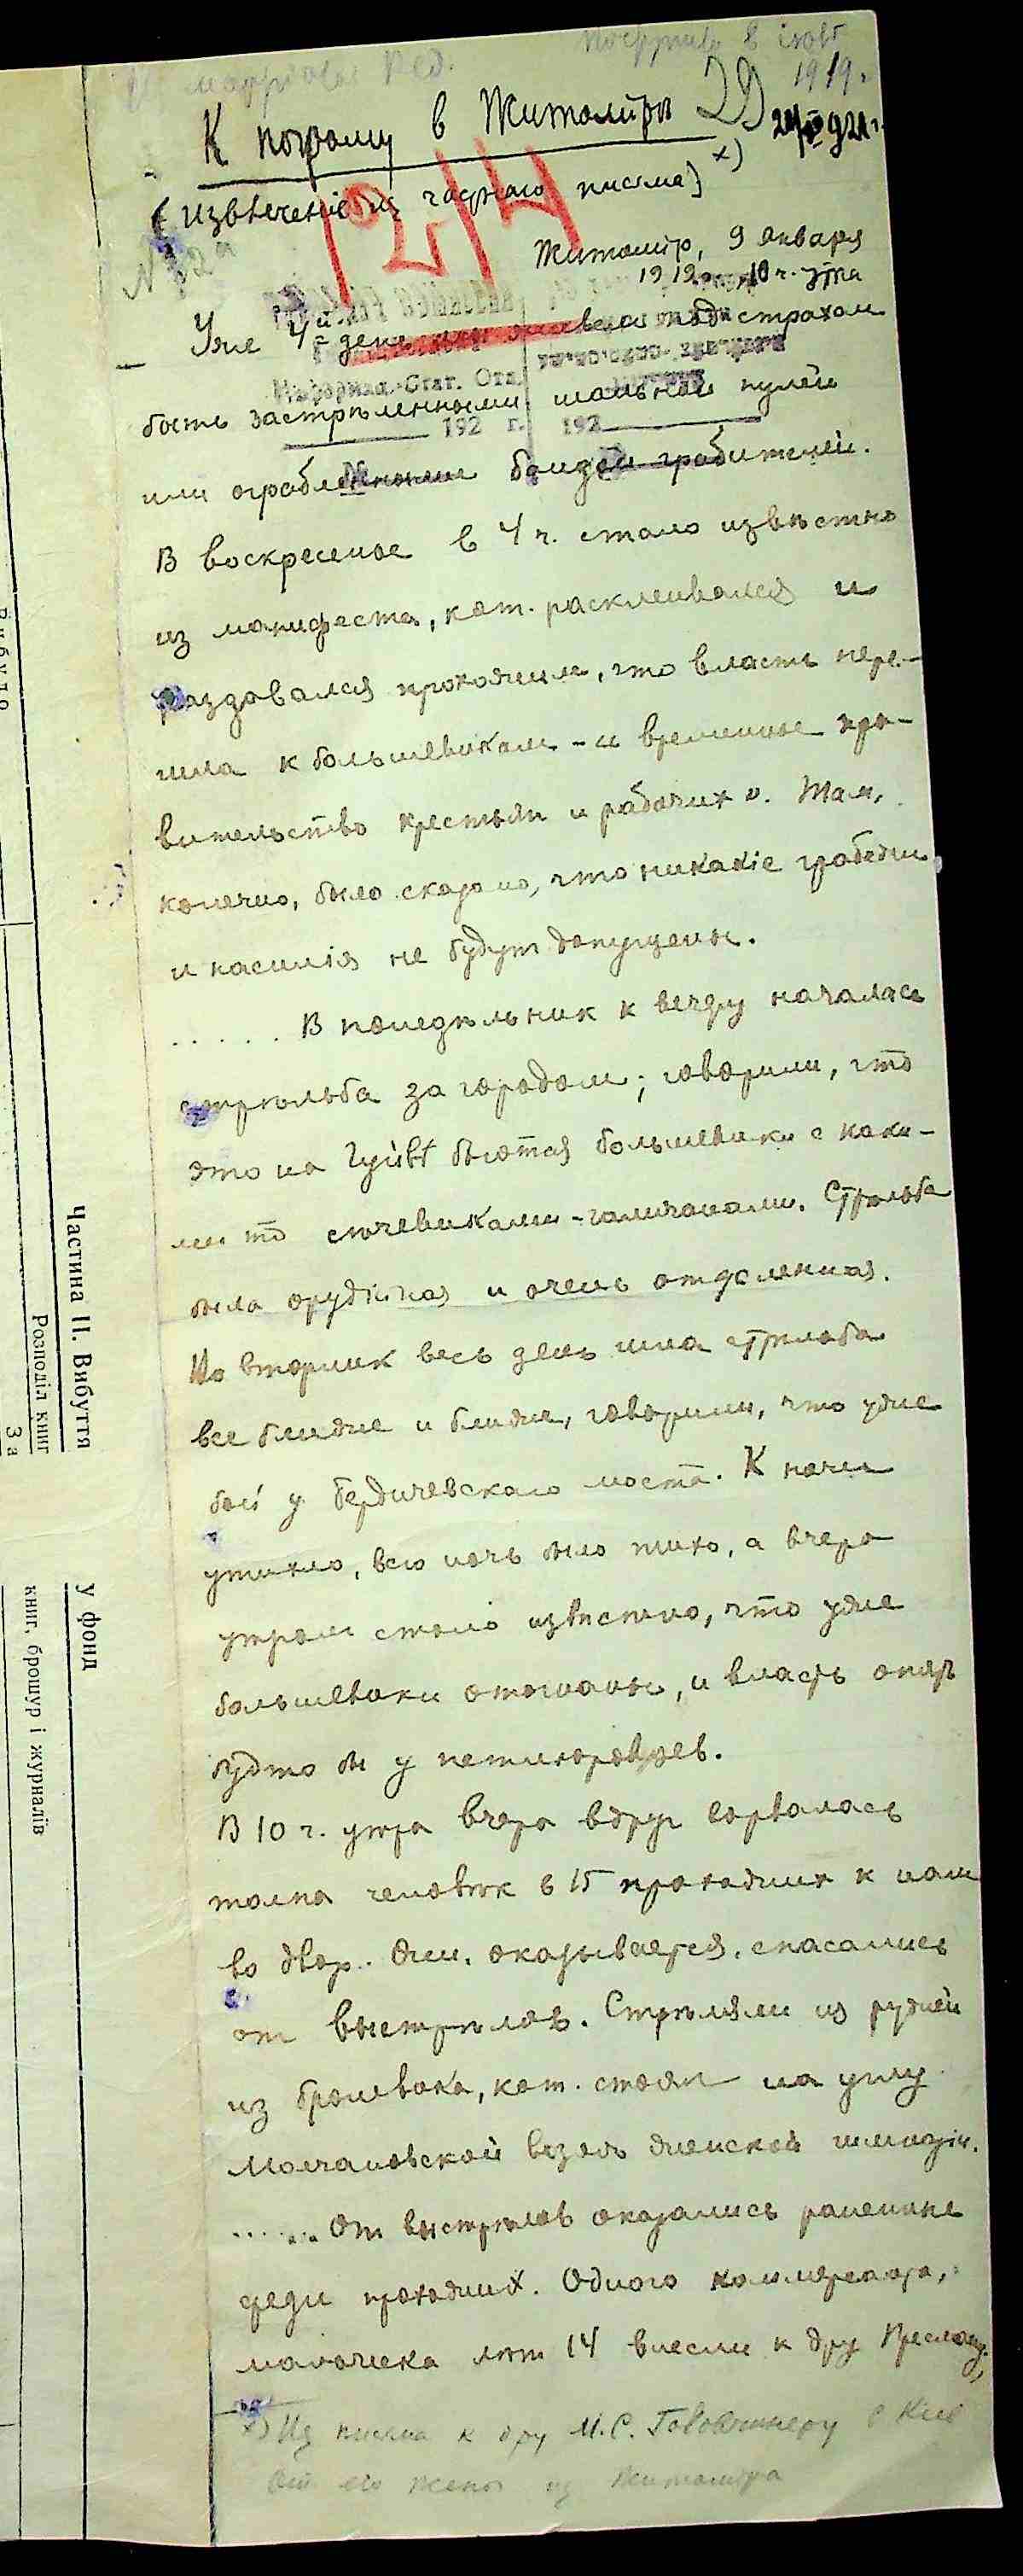 К погрому в Житомире
24/IV 921 г.
(Извлечение из частного письма) х)
Житомир, 9 января
1919 г. 10 ч. утра
Уже 4й день под страхом
Информац.-Стат. Отд.
быть застрѣленными шальной пулей
192 г. 192
или ограбленными бандой грабителей.
В воскресенье в 4 ч. стало извѣстно
из манифеста, кот. расклеивался и
раздавался прохожим, что власть пере-
шла к большевикам - и временное пра-
вительство крестьян и рабочих". Там,
конечно, было сказано, что никакіе грабежи
и насилія не будут допущены.
..... В понедѣльник к вечеру началась
стрѣльба за городом; говорили, что
это на Гуйвѣ бьются большевики с каки-
ми то сѣчевиками-галичанами. Стрѣльба
была орудійная и очень отдаленная.
Во вторник весь день шла стрѣльба
все ближе и ближе, говорили, что уже
бой у бердичевскаго моста. К ночи
утихло, всю ночь было тихо, а вчера
утром стало извѣстно, что уже
большевики отогнаны, и власть опять
будто бы у петлюровцев.
В 10 ч. утра вчера вдруг ворвалась
толпа человѣк в 15 прохожих к нам
во двор. Они, оказывается, спасались
от выстрѣлов. Стрѣляли из ружей
из броневика, кот. стоял на углу
Молчановской возлѣ женской гимназіи.
...... От выстрѣлов оказались раненые
среди прохожих. Одного коммерсанта,
мальчика лѣт 14 внесли к дру
х) Из письма к дру М.С. Головчинеру в Кіев
от его жены из Житомира
Частина II. Вибуття
Розподіл книг
За
у фонд
книг, брошур і журналів